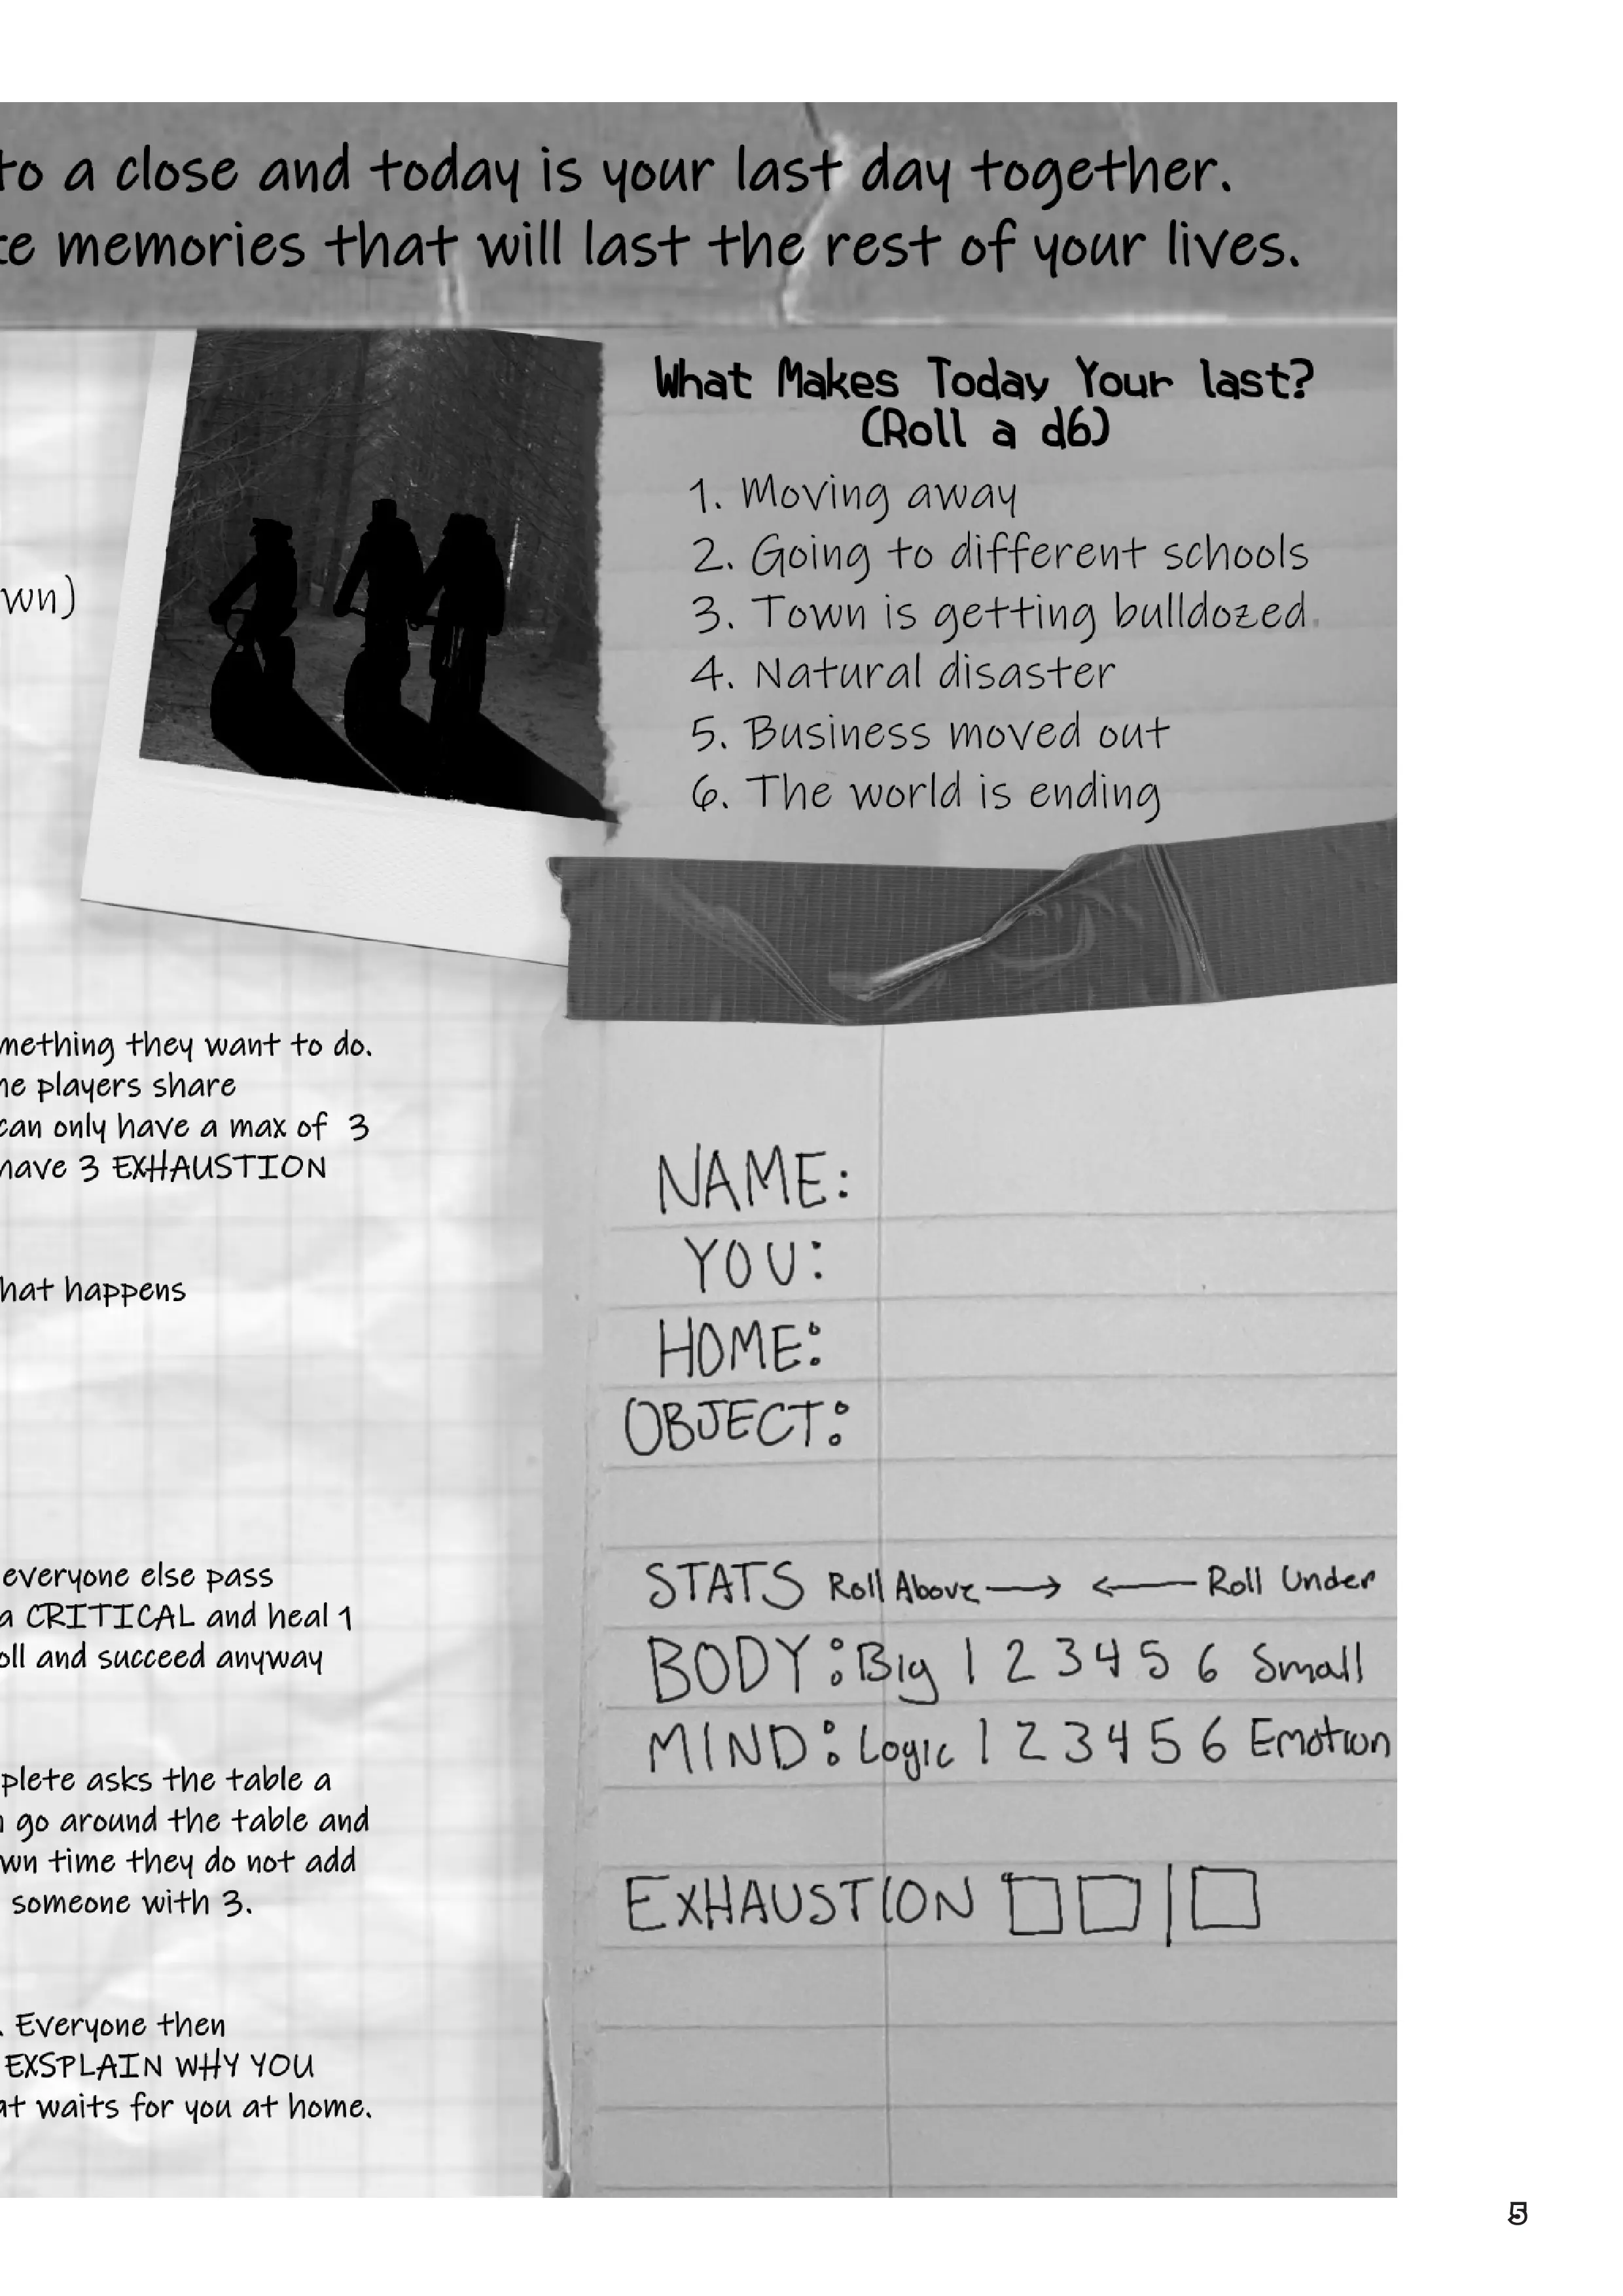 to a close and today is your last day together.
memories that will last the rest of your lives.
What Makes Today Your last?
(Roll a d6)
1. Moving away
2. Going to different schools
3. Town is getting bulldozed.
4. Natural disaster
5. Business moved out
6. The world is ending
wn)
mething they want to do.
players share
can only have a max of 3
have 3 EXHAUSTION
hat happens
everyone else pass
a CRITICAL and heal 1
oll and succeed anyway
plete asks the table a
go around the table and
wn time they do not add
someone with 3.
. Everyone then
EXSPLAIN WHY YOU
at waits for you at home.
NAME:
YOU:
HOME:
OBJECT:
STATS Roll Above → ← Roll Under
BODY: Big 1 2 3 4 5 6 Small
MIND: Logic 1 2 3 4 5 6 Emotion
EXHAUSTION
5